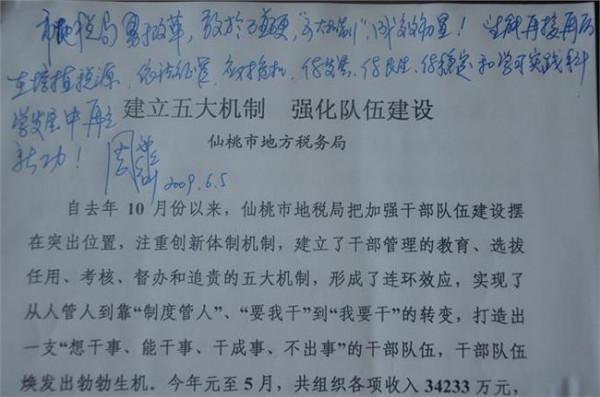 市地税局勇于改革，敢于碰硬，"五大机制"，成效明显！望继续再接再厉
在培植税源、依法征管、应对危机、保发展、保民生、保稳定和学习实践科
学发展中再立
新功！
2009.6.5
建立五大机制 强化队伍建设
仙桃市地方税务局
自去年 10 月份以来，仙桃市地税局把加强干部队伍建设摆
在突出位置，注重创新体制机制，建立了干部管理的教育、选拔
任用、考核、督办和追责的五大机制，形成了连环效应，实现了
从人管人到靠“制度管人”、“要我干”到“我要干”的转变，打造出
一支“想干事、能干事、干成事、不出事”的干部队伍，干部队伍
焕发出勃勃生机。今年元至 5 月，共组织各项收入 34233 万元，